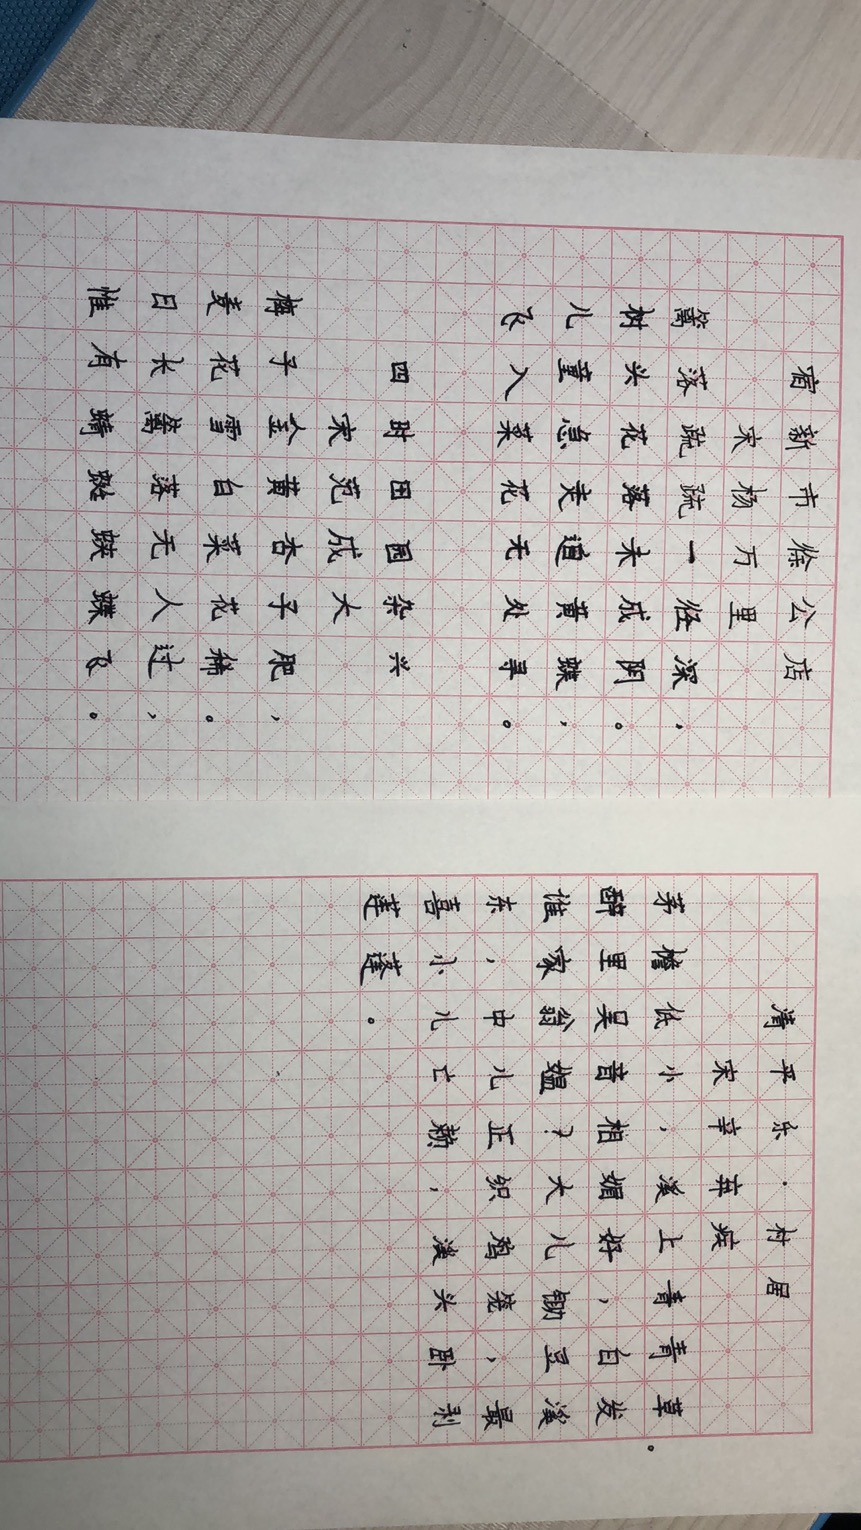 宿新市徐公店
宋杨万里
篱落疏疏一径深，
树头花落未成阴。
儿童急走追黄蝶，
飞入菜花无处寻。
四时田园杂兴
宋范成大
梅子金黄杏子肥，
麦花雪白菜花稀。
日长篱落无人过，
惟有蜻蜓蛱蝶飞。
清平乐·村居
宋辛弃疾
茅檐低小，溪上青青草。
醉里吴音相媚好，白发
谁家翁媪？大儿锄豆溪
东，中儿正织鸡笼，最
喜小儿亡赖，溪头卧剥
莲蓬。